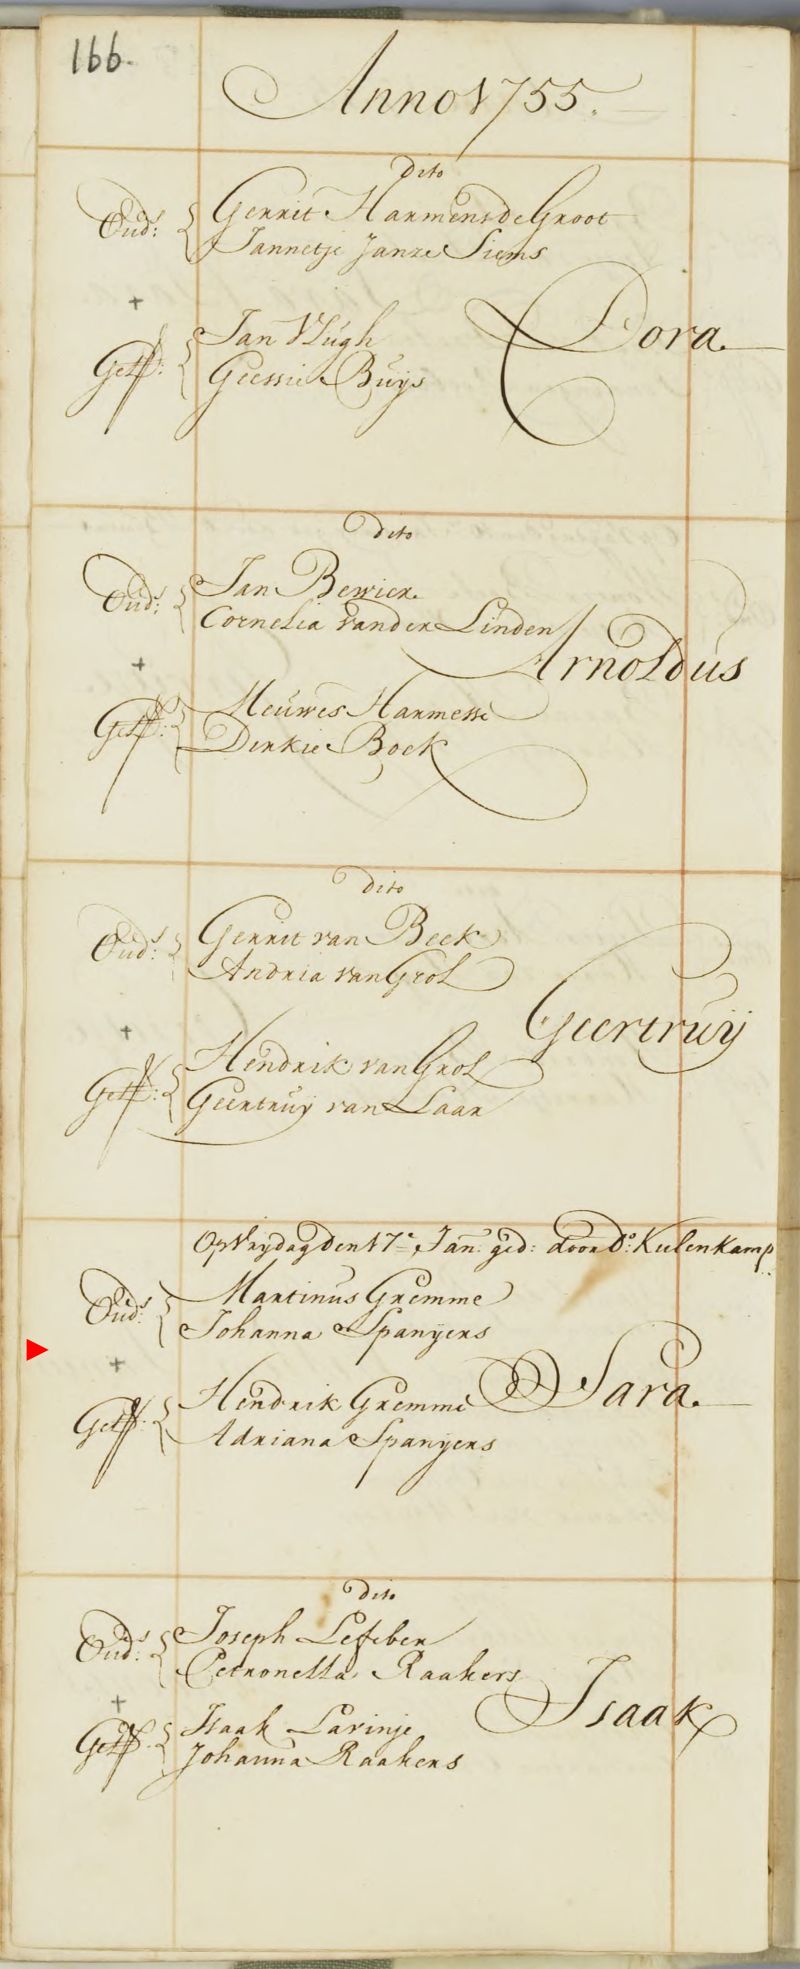 166.
Anno 1755.
dito
Oud:s Gerrit Harmens de Groot
Jannetje Janze Siems
+
Get: Jan Vlugh
Geessie Buys
Dora.
dito
Oud:s Jan Bewier
Cornelia van der Linden
Arnoldus
+
Get: Meuwes Harmesse
Dirkie Boek
dito
Oud:s Gerrit van Beek
Andria van Grol
Geertruij
+
Get: Hendrik van Grol
Geertruij van Laar
Op Vrydag den 17e Jan: ged: door Do: Kulenkamp
Oud:s Martinus Gremme
Johanna Spanjers
+
Sara.
Get: Hendrik Gremme
Adriana Spanjers
dito
Oud:s Joseph Lefeber
Petronella Raakers
+
Isaak
Get: Isaak Lavinje
Johanna Raakers